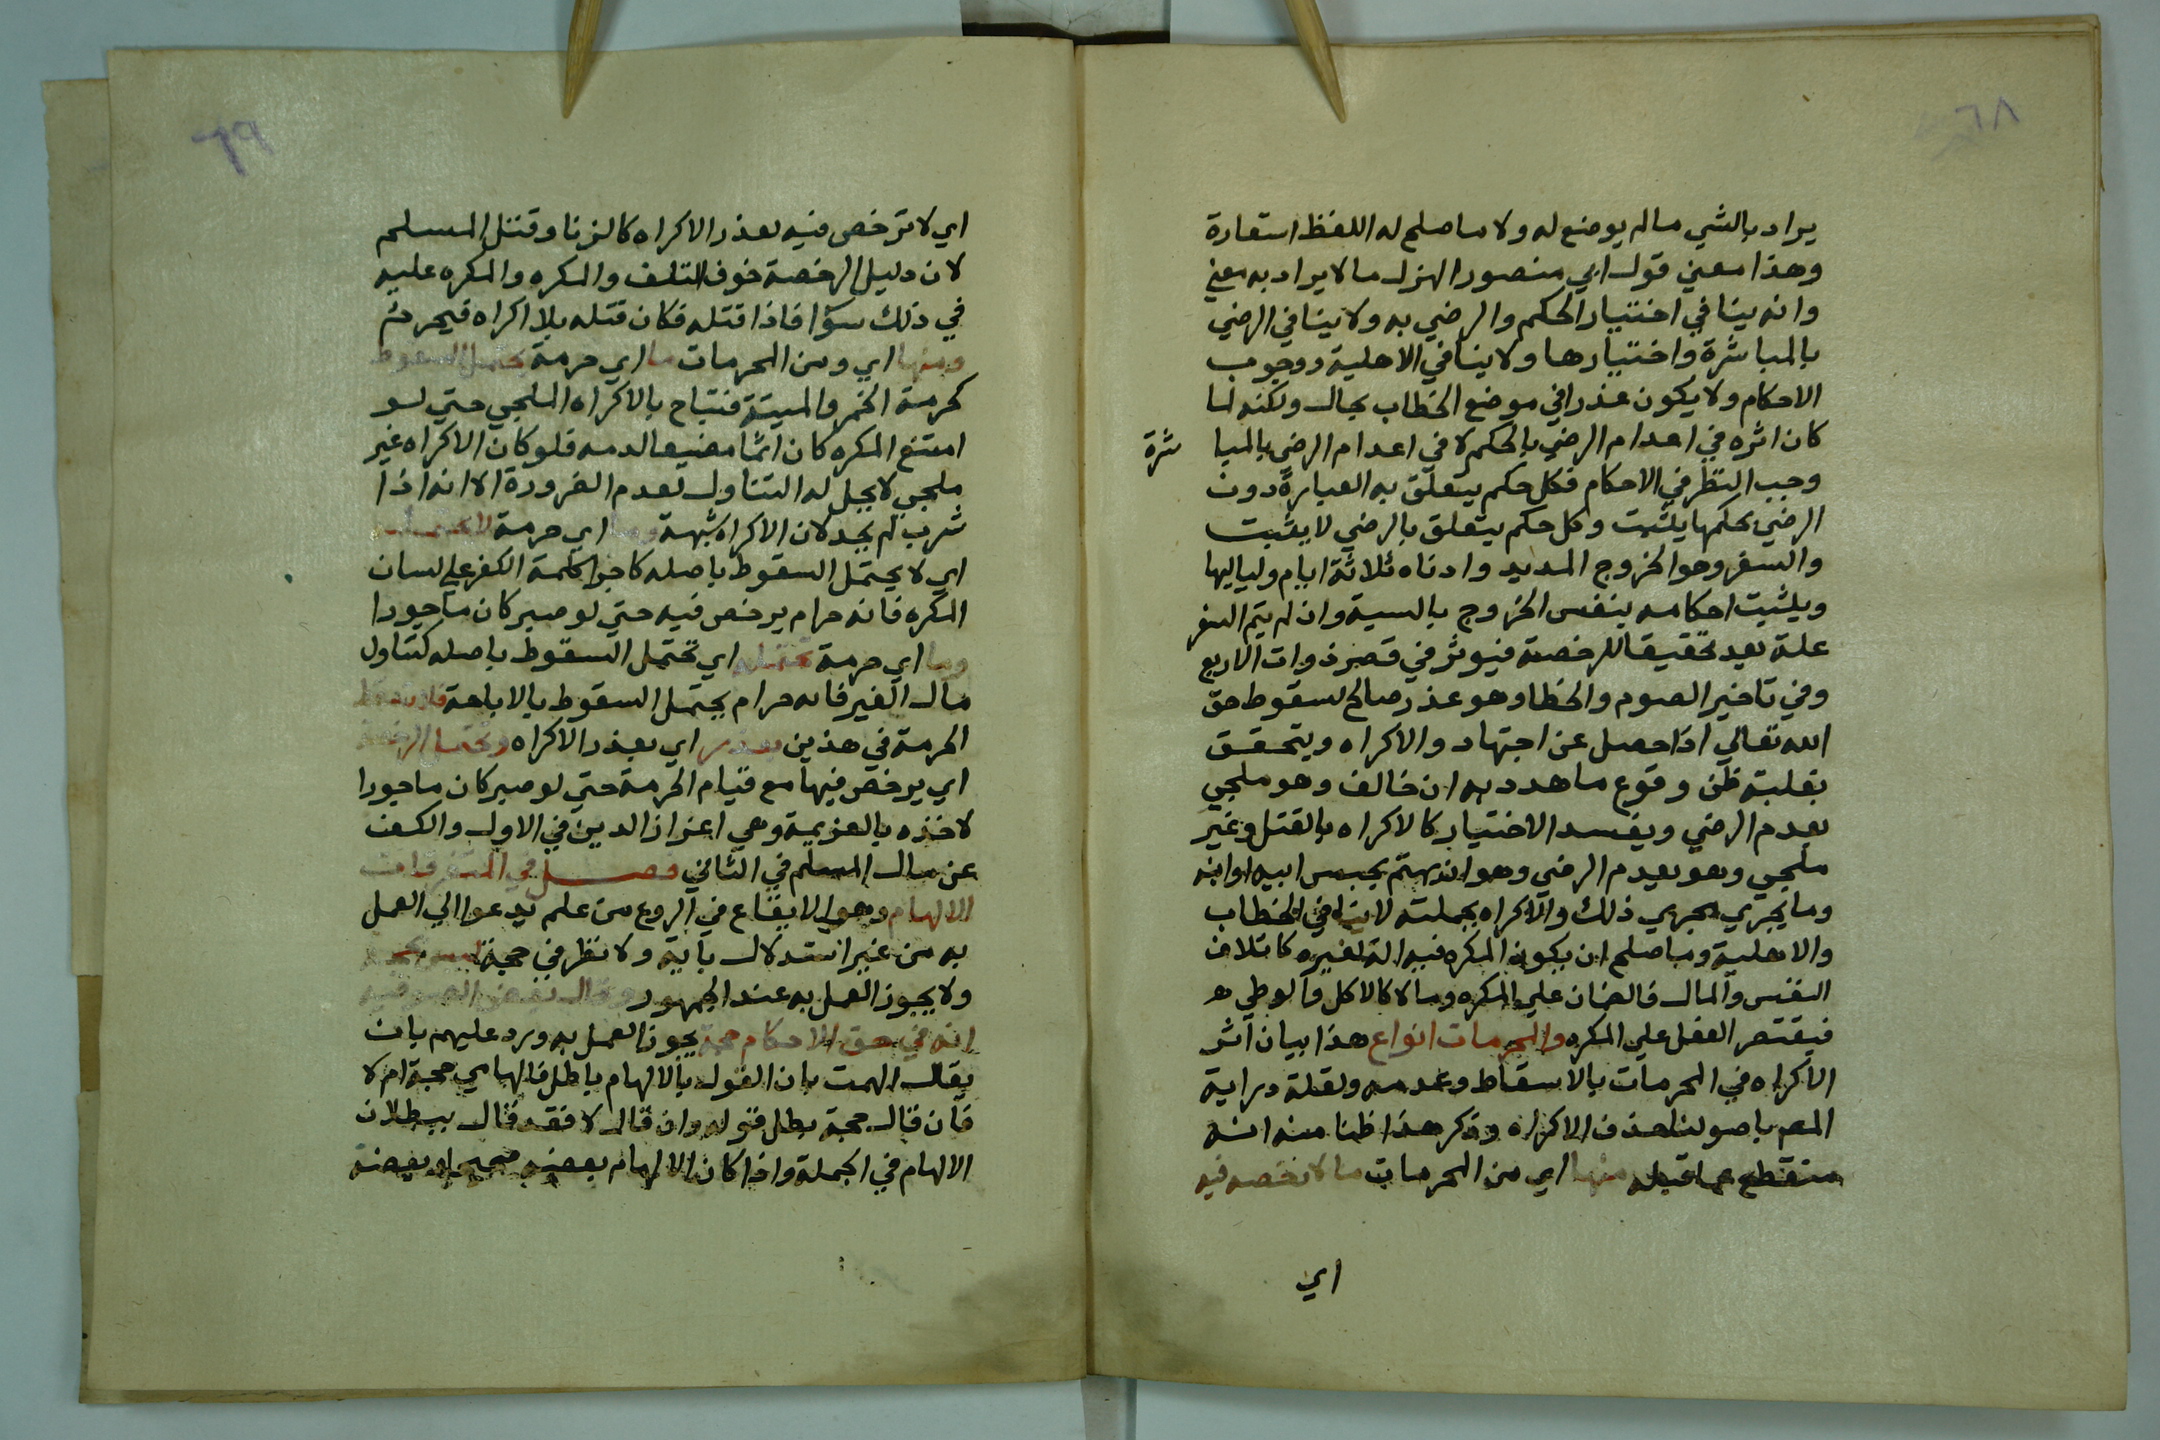 ٦٨
يراد بالشي مالم يوضع له ولا ما صلح له اللفظ استعارة
وهذا معني قول ابي منصور الهزل ما لا يراد به معني
وانه ينافي اختيار الحكم والرضي به ولا ينافي الرضي
بالمباشرة واختيارها ولا ينافي الاهلية ووجوب
الاحكام ولا يكون عذرا في موضع الخطاب بحال ولكنه لما
كان اثره في اعدام الرضي بالحكم لا في اعدام الرضي بالمبا شرة
وجب النظر في الاحكام فكل حكم يتعلق به العبارة دون
الرضي بحكمها يثبت وكل حكم يتعلق بالرضي لا يثبت
والسفر وهو الخروج المديد وادناه ثلاثة ايام ولياليها
ويثبت احكامه بنفس الخروج بالسية وان لم يتم السفر
علة بعد تحقيقا للرخصة فيوثر في قصر ذوات الاربع
وفي تاخير الصوم والخطا وهو عذر صالح لسقوط حق
الله تعالي اذا حصل عن اجتهاد والاكراه ويتحقق
بغلبة ظن وقوع ما هدد به ان خالف وهو ملجي
بعدم الرضي ويفسد الاختيار كالاكراه بالقتل وغير
ملجي وهو بعدم الرضي وهو ان يهتم بحبس ابيه او ابنه
وما يجري مجري ذلك والاكراه بجملته لا ينافي الخطاب
والاهلية وما صلح ان يكون المكره فيه الة لغيره كاتلاف
النفس والمال فالضمان علي المكره وما لا كالاكل والوطي ه
فيقتصر الفعل علي المكره والحرمات انواع هذا بيان اثر
الاكراه في المحرمات بالاسقاط وعدمه ولقلة دراية
المص باصولنا حذف الاكراه وذكر هذا ظنا منه انه
منقطع عما قبله منها اي من المحرمات ما لا رخصه فيه
اي
٦٩
اي لا ترخص فيه بعذر الاكراه كالزنا وقتل المسلم
لان دليل الرخصة خوف التلف والمكره والمكره عليه
في ذلك سوا فاذا قتله فكان قتله بلا اكراه فيحرم
ومنها اي ومن المحرمات ما اي حرمة تحتمل السقوط
كحرمة الخمر والميتة فتباح بالاكراه الملجي حتي لو
امتنع المكره كان اثما مضيعا لدمه فلو كان الاكراه غير
ملجي لا يحل له التناول لعدم الضرورة الا انه اذا
شرب لم يحد لان الاكراه شبهة وما اي حرمة لا تحتمل
اي لا يحتمل السقوط باصله كاجرا كلمة الكفر علي لسان
المكره فانه حرام يرخص فيه حتي لو صبر كان ماجورا
وما اي حرمة تحتمله اي تحتمل السقوط باصله كتناول
مال الغير فانه حرام يحتمل السقوط بالاباحة فلا تسقط
الحرمة في هذين بعذر اي بعذر الاكراه وتحتمل الرخصة
اي يرخص فيها مع قيام الحرمة حتي لو صبر كان ماجورا
لاخذه بالعزيمة وهي اعزاز الدين في الاول والكف
عن مال المسلم في الثاني فصل في المتفرقات
الالهام وهو الايقاع في الروع من علم يدعوا الي العمل
به من غير استدلال باية ولا نظر في حجة ليس بحجة
ولا يجوز العمل به عند الجمهور وقال بعض الصوفية
انه في حق الاحكام حجة يجوز العمل به ورد عليهم بان
يقال الهمت بان القول بالالهام باطل فالهامي حجة ام لا
فان قال حجة بطل قوله وان قال لا فقد قال ببطلان
الالهام في الجملة واذا كان الالهام بعضه صحيحا وبعضه